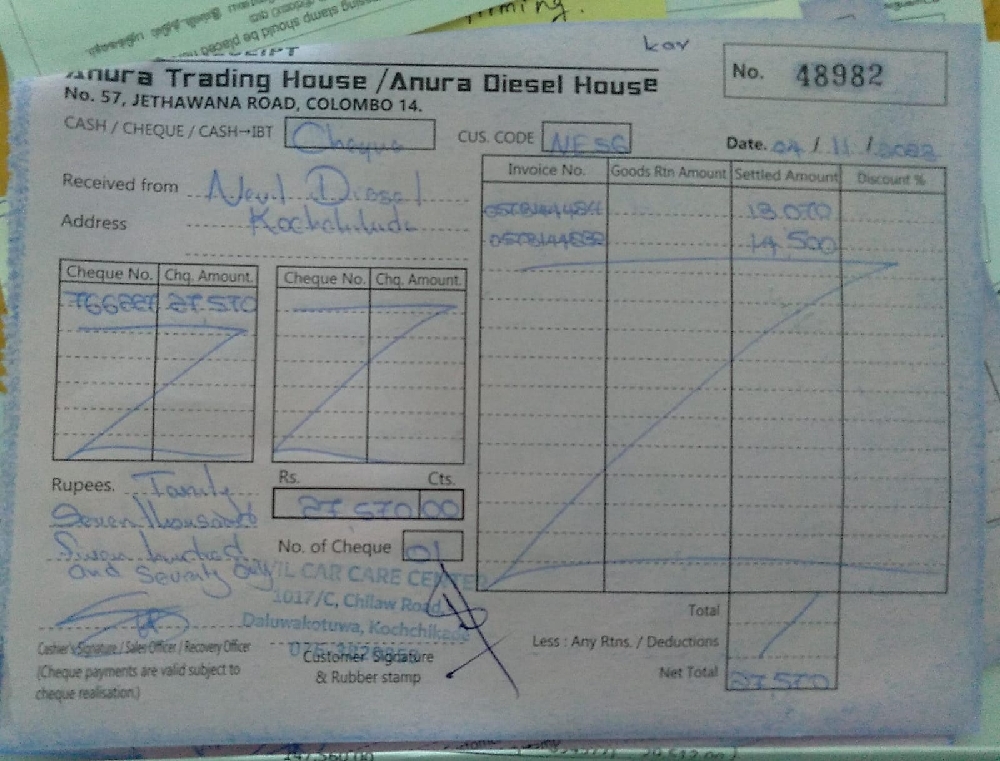 kav
Anura Trading House / Anura Diesel House
No. 48982
No. 57, JETHAWANA ROAD, COLOMBO 14.
CASH / CHEQUE / CASH→IBT Cheque CUS. CODE NESG Date. 04 / 11 / 2022
Received from Nevil Diesel
Address
Invoice No. Goods Rtn Amount Settled Amount Discount %
13 070
14 500
Cheque No. Chq. Amount. Cheque No. Chq. Amount.
27 570
Rs. Cts.
27 570 00
Rupees.
Seven thousand
hundred
and Seventy only
No. of Cheque 01
VIL CAR CARE CENTER
1017/C, Chilaw Road,
Daluwakotuwa, Kochchikade
Total
Less : Any Rtns. / Deductions
Net Total 27 570
Cashier's Signature / Sales Officer / Recovery Officer
Customer Signature
& Rubber stamp
(Cheque payments are valid subject to
cheque realisation.)